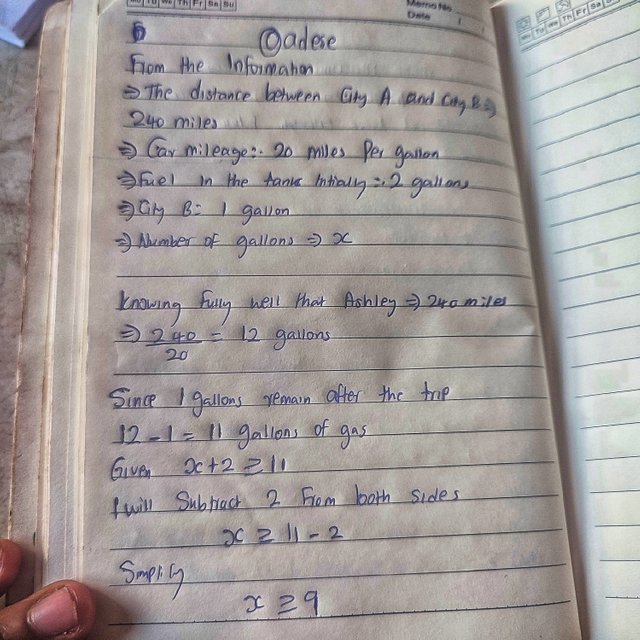 Mo Tu We Th Fr Sa Su
Memo No.
Date / /
Mo Tu We Th Fr Sa Su
Oadese
From the Information
⇒ The distance between City A and City B ⇒
240 miles
⇒ Car mileage:- 20 miles Per gallon
⇒ Fuel in the tank Intially :- 2 gallons
⇒ City B = 1 gallon
⇒ Number of gallons ⇒ x
Knowing fully well that Ashley ⇒ 240 miles
⇒ 240/20 = 12 gallons
Since 1 gallons remain after the trip
12 - 1 = 11 gallons of gas
Given x+2 ≥ 11
I will Subtract 2 From both sides
x ≥ 11 - 2
Smplify
x ≥ 9